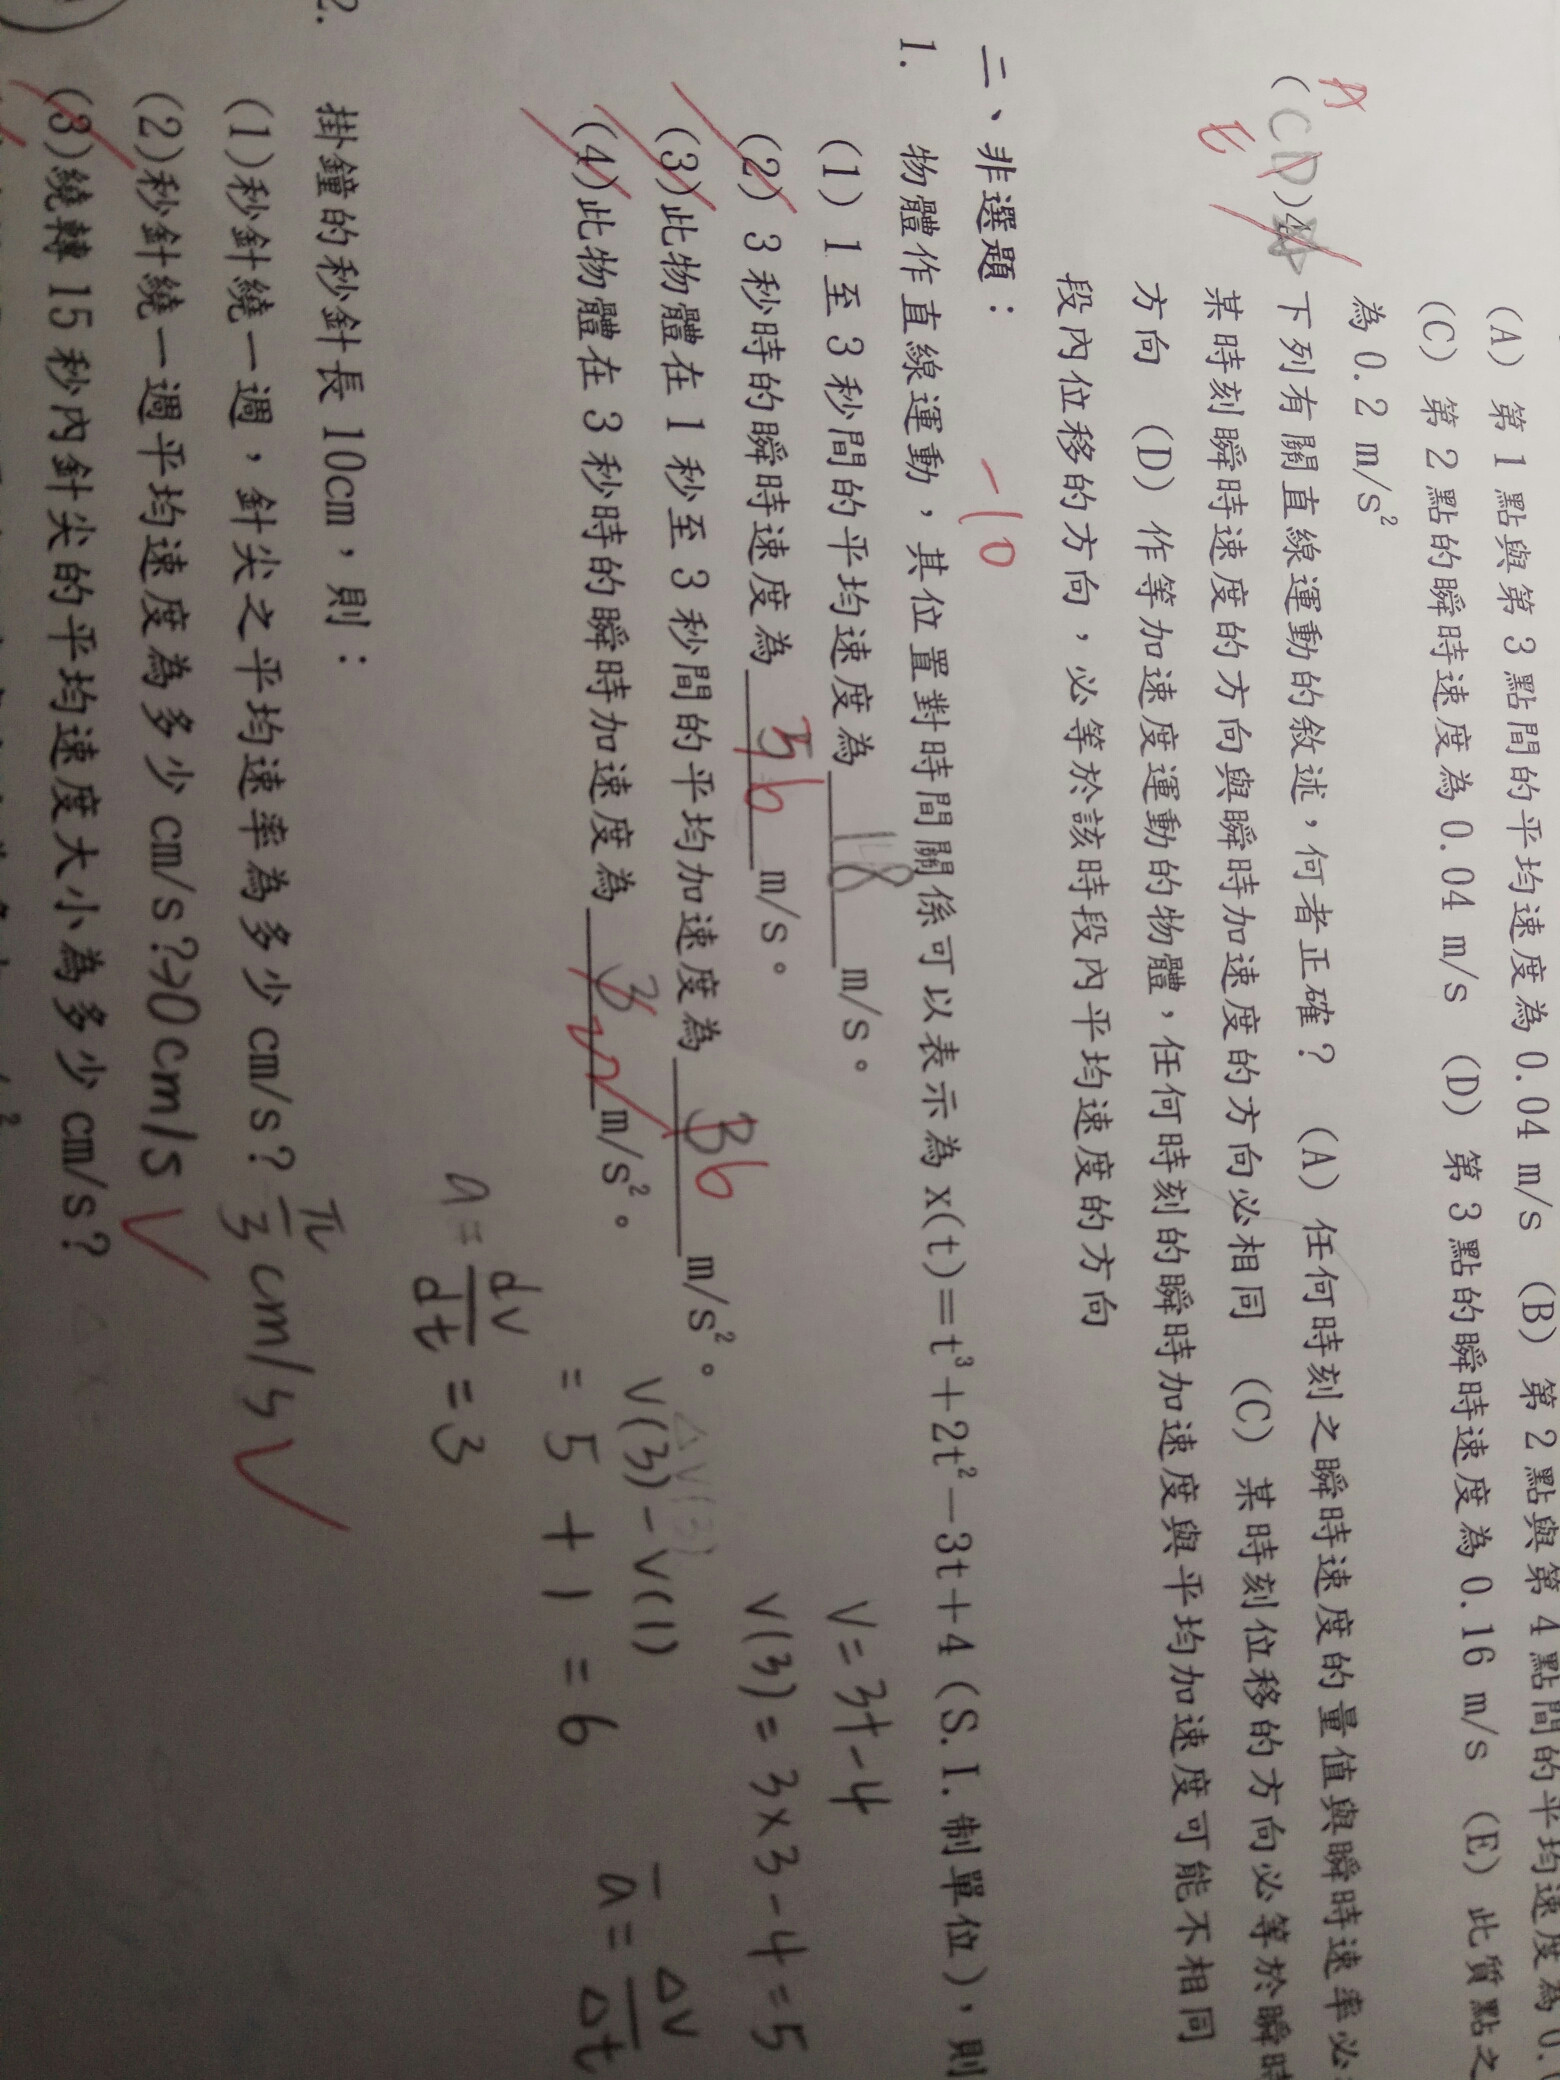 (A) 第 1 點與第 3 點間的平均速度為 0.04 m/s (B) 第 2 點與第 4 點間的平均速度為 0.
(C) 第 2 點的瞬時速度為 0.04 m/s (D) 第 3 點的瞬時速度為 0.16 m/s (E) 此質點之
為 0.2 m/s²
A
E
(CD)4. 下列有關直線運動的敘述，何者正確？ (A) 任何時刻之瞬時速度的量值與瞬時速率必
某時刻瞬時速度的方向與瞬時加速度的方向必相同 (C) 某時刻位移的方向必等於瞬時
方向 (D) 作等加速度運動的物體，任何時刻的瞬時加速度與平均加速度可能不相同
段內位移的方向，必等於該時段內平均速度的方向
二、非選題： -10
1. 物體作直線運動，其位置對時間關係可以表示為 x(t)=t³+2t²-3t+4 (S.I.制單位)，則
(1) 1 至 3 秒間的平均速度為 18 m/s。 V=3t-4
(2) 3 秒時的瞬時速度為 36 m/s。 V(3)=3×3-4=5
(3)此物體在 1 秒至 3 秒間的平均加速度為 36 m/s²。 V(3)-V(1)
(4)此物體在 3 秒時的瞬時加速度為 3 22 m/s²。 =5+1=6 ā=ΔV/Δt
a=dv/dt=3
2. 掛鐘的秒針長 10cm，則：
(1)秒針繞一週，針尖之平均速率為多少 cm/s? π/3 cm/s
(2)秒針繞一週平均速度為多少 cm/s?→0cm/s
(3)繞轉 15 秒內針尖的平均速度大小為多少 cm/s?